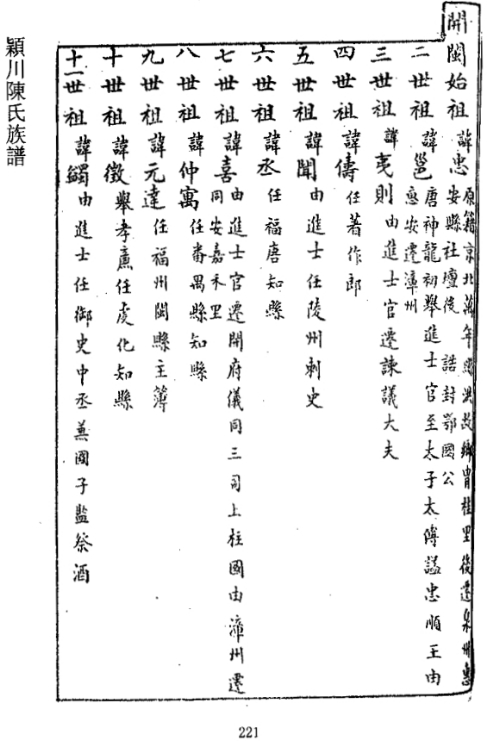 開閩始祖諱忠原籍京兆萬年縣洪故鄉胄桂里後遷泉州惠
安縣社壇後 誥封鄂國公
二世祖諱邕唐神龍初舉進士官至太子太傅謚忠順王由
惠安遷漳州
三世祖諱夷則由進士官遷諫議大夫
四世祖諱儔任著作郎
五世祖諱聞由進士任陵州刺史
六世祖諱丞任福唐知縣
七世祖諱喜由進士官遷開府儀同三司上柱國由漳州遷
同安嘉禾里
八世祖諱仲寓任番禺縣知縣
九世祖諱元達任福州閩縣主簿
十世祖諱徵舉孝廉任虔化知縣
十一世祖諱蠲由進士任御史中丞兼國子監祭酒
穎川陳氏族譜
221